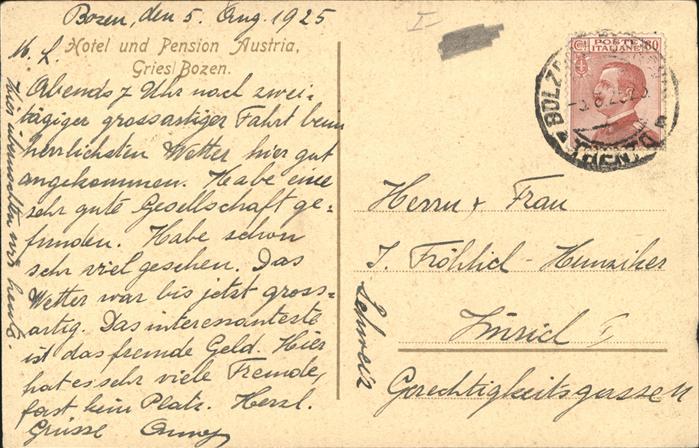 Bozen, den 5. Aug. 1925
Hotel und Pension Austria,
Gries/Bozen.
M. L.
Abends 7 Uhr nach zwei-
tägiger grossartiger Fahrt beim
herrlichsten Wetter hier gut
angekommen. Habe eine
sehr gute Gesellschaft ge-
funden. Habe schon
sehr viel gesehen. Das
Wetter war bis jetzt gross-
artig. Das interessanteste
ist das fremde Geld. Hier
hat es sehr viele Fremde,
fast kein Platz. Herzl.
Grüsse
hier übernachten wir heute.
I
POSTE
ITALIANE
80
BOLZ
TRENTO
Herrn & Frau
J. Fröhlich-Hunziker
Zürich I
Gerechtigkeitsgasse
Schweiz